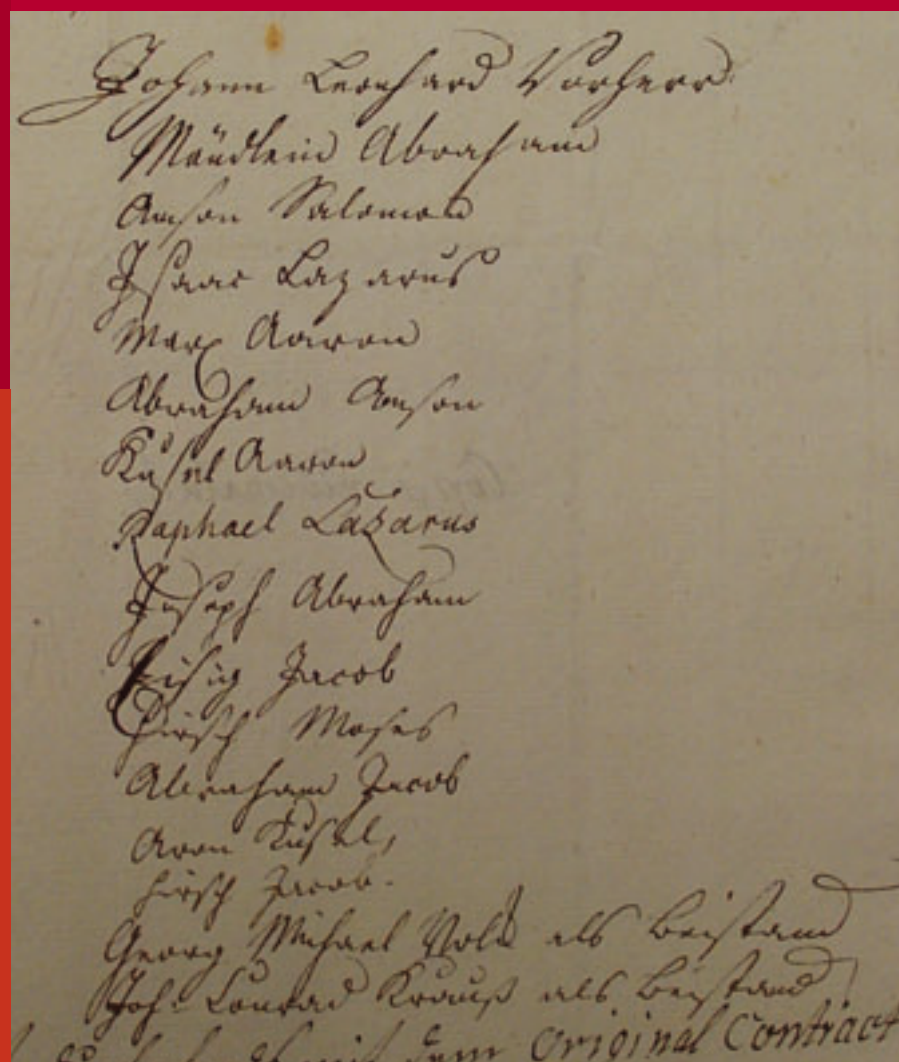 Johann Leonhard Vorherr
Mändlein Abraham
Amson Salomon
Isaac Lazarus
Marx Aaron
Abraham Amson
Küsel Aaron
Raphael Lazarus
Joseph Abraham
Eisig Jacob
Hirsch Moses
Abraham Jacob
Aron Küsel,
Hirsch Jacob.
Georg Michael Volk als Beistand
Joh: Conrad Krauß als Beistand
mit dem Original Contract